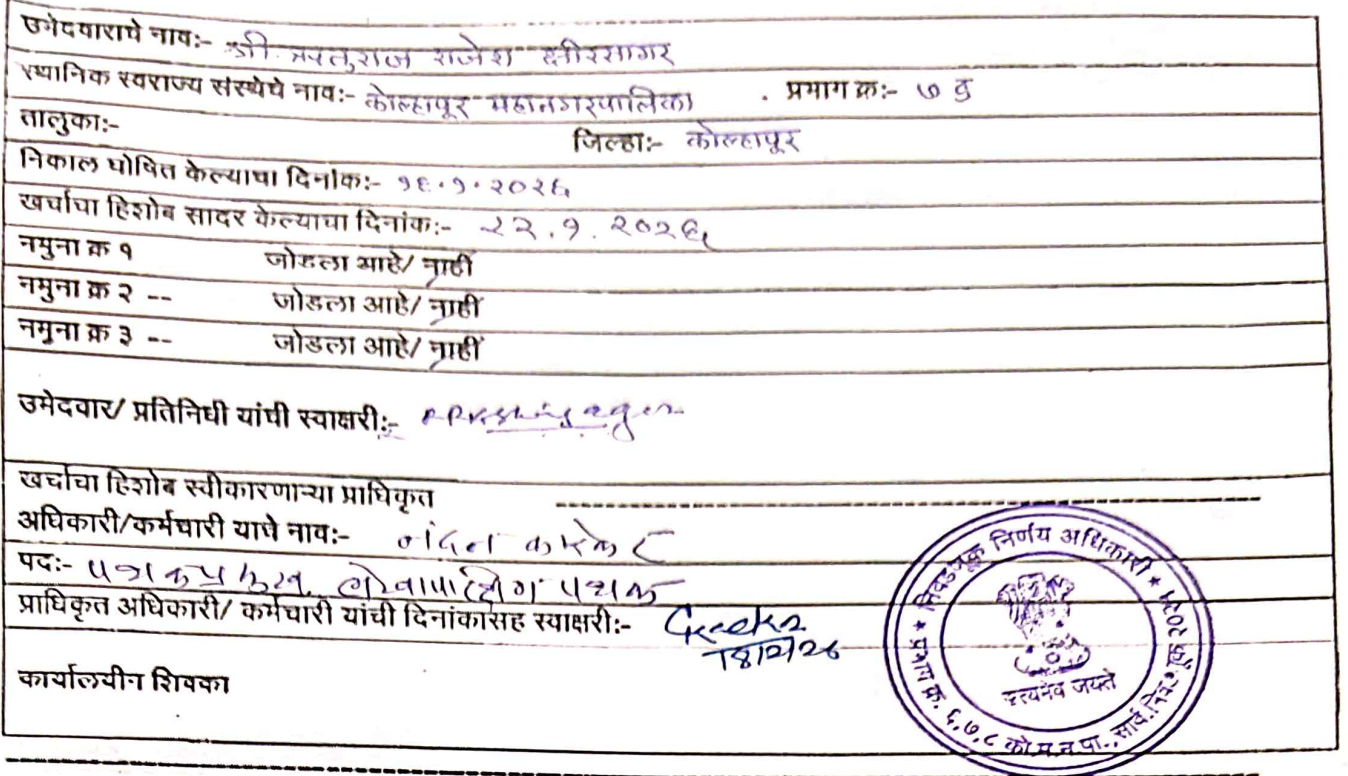 उमेदवाराचे नाव:- श्री. ऋतुराज राजेश क्षीरसागर
स्थानिक स्वराज्य संस्थेचे नाव:- कोल्हापूर महानगरपालिका . प्रभाग क्र:- ७ ड
तालुका:- जिल्हा:- कोल्हापूर
निकाल घोषित केल्याचा दिनांक:- १६.१.२०२६
खर्चाचा हिशोब सादर केल्याचा दिनांक:- २२.१.२०२६
नमुना क्र १ जोडला आहे/ नाही
नमुना क्र २ -- जोडला आहे/ नाही
नमुना क्र ३ -- जोडला आहे/ नाही
उमेदवार/ प्रतिनिधी यांची स्वाक्षरी:-
खर्चाचा हिशोब स्वीकारणाऱ्या प्राधिकृत
अधिकारी/कर्मचारी याचे नाव:-
पद:- पथक प्रमुख पथक
प्राधिकृत अधिकारी/ कर्मचारी यांची दिनांकासह स्वाक्षरी:-
18/2/26
कार्यालयीन शिक्का
निवडणूक निर्णय अधिकारी
प्रभाग क्र. ६,७,८ को.म.न.पा.,
सत्यमेव जयते